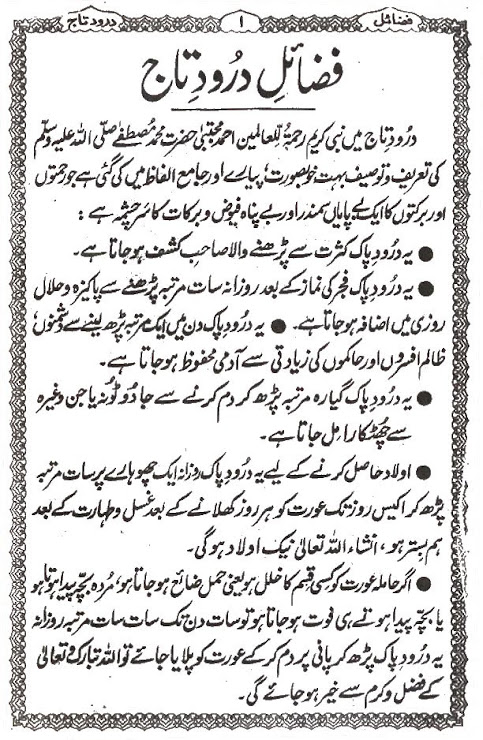 فضائل ۱ درود تاج
فضائلِ درُودِ تاج
درُودِ تاج میں نبی کریم رحمۃٌ لِّلعالمین احمد مجتبیٰ حضرت محمد مُصطفےٰ صلّی اللہ علیہ وسلّم
کی تعریف و توصیف بہت خوبصورت، پیارے اور جامع الفاظ میں کی گئی ہے جو رحمتوں
اور برکتوں کا ایک بے پایاں سمندر اور بے پناہ فیوض و برکات کا سرچشمہ ہے :
● یہ درودِ پاک کثرت سے پڑھنے والا صاحبِ کشف ہو جاتا ہے۔
● یہ درودِ پاک فجر کی نماز کے بعد روزانہ سات مرتبہ پڑھنے سے پاکیزہ و حلال
روزی میں اضافہ ہو جاتا ہے۔ ● یہ درودِ پاک دن میں ایک مرتبہ پڑھ لینے سے دُشمنوں،
ظالم افسروں اور حاکموں کی زیادتی سے آدمی محفوظ ہو جاتا ہے۔
● یہ درودِ پاک گیارہ مرتبہ پڑھ کر دم کرنے سے جادُو ٹُونہ یا جن وغیرہ
سے چُھٹکارا مِل جاتا ہے۔
● اولاد حاصل کرنے کے لیے یہ درودِ پاک روزانہ ایک چھوہارے پر سات مرتبہ
پڑھ کر اکیس روز تک عورت کو ہر روز کھلانے کے بعد غسل و طہارت کے بعد
ہم بستر ہو، انشاء اللہ تعالیٰ نیک اولاد ہوگی۔
● اگر حاملہ عورت کو کسی قسم کا خلل ہو یعنی حمل ضائع ہو جاتا ہو، مُردہ بچّہ پیدا ہوتا ہو
یا بچّہ پیدا ہوتے ہی فوت ہو جاتا ہو تو سات دن تک سات سات مرتبہ روزانہ
یہ درودِ پاک پڑھ کر پانی پر دم کر کے عورت کو پلایا جائے تو اللہ تبارک و تعالیٰ
کے فضل و کرم سے خیر ہو جائے گی۔